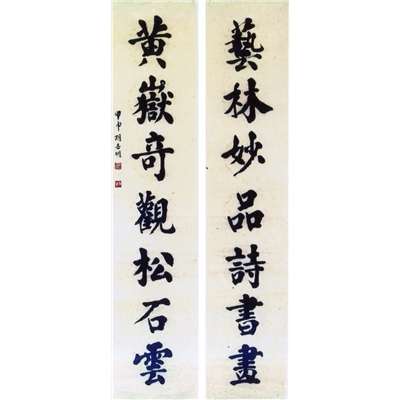 藝林妙品詩書畫
黃嶽奇觀松石雲
甲申